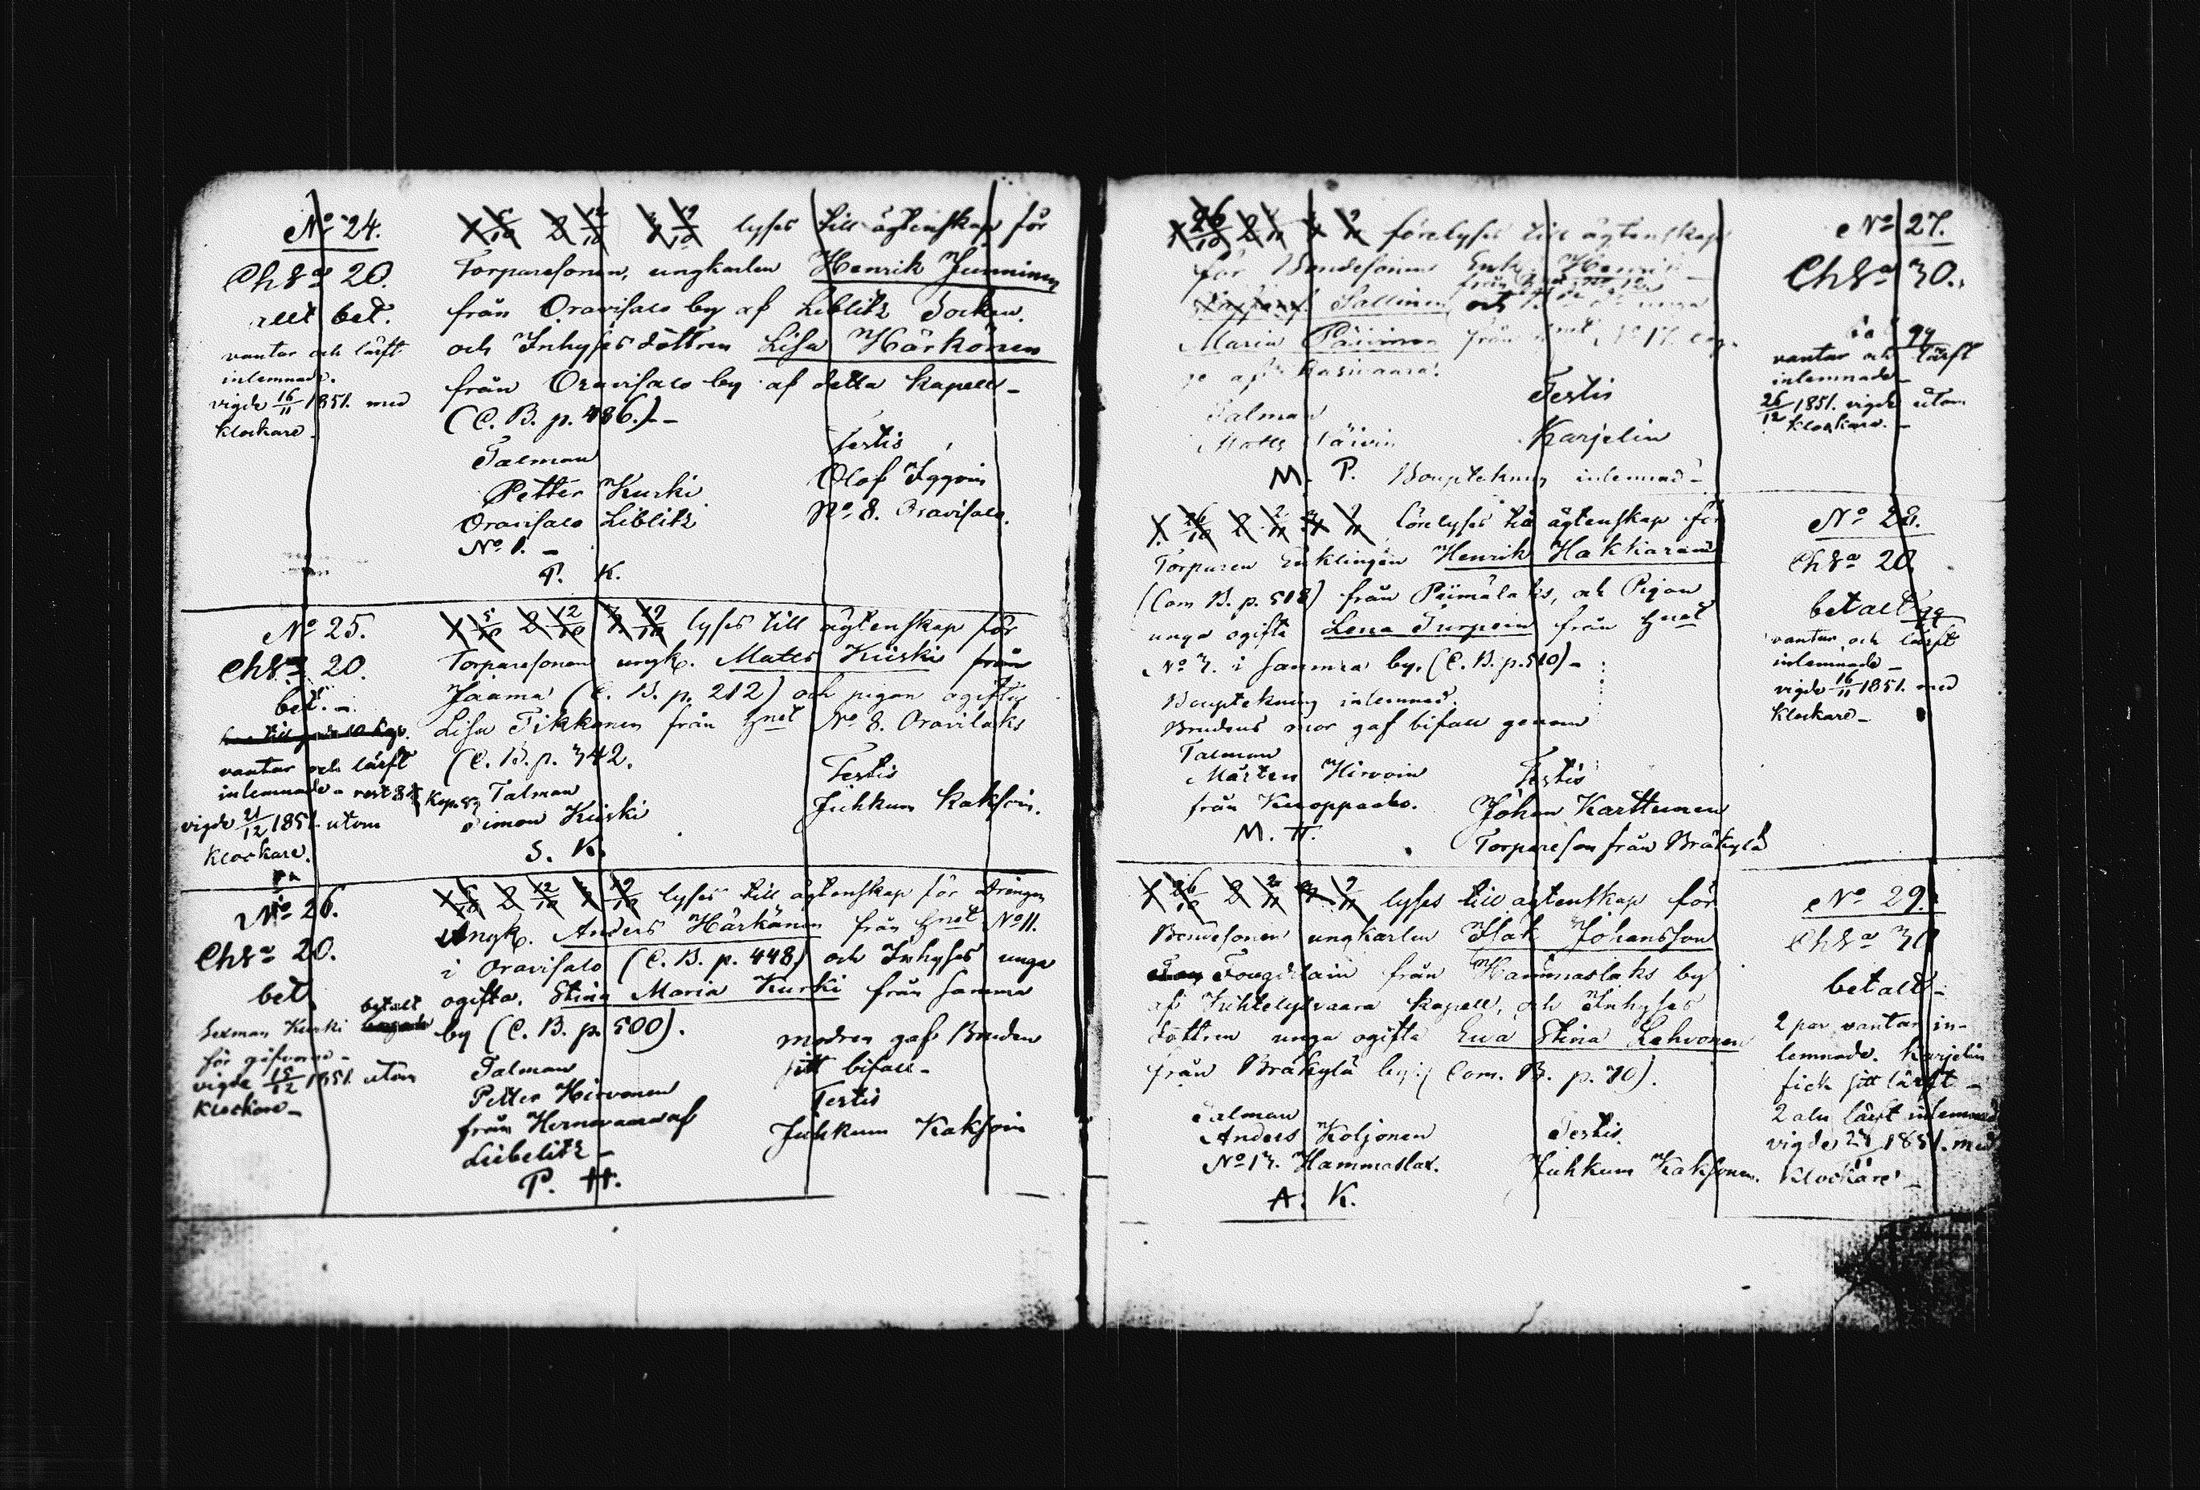 No 24.
Ch Sa 20.
allt bet.
vantar och lärft
inlemnade.
vigde 16/11 1851. med
klockare.
1 5/10 2 12/10 3 19/10 lyses till ägtenskap för
Torparesonen, ungkarlen Henrik Junninen
från Oravisalo by af Liblitz Socken.
och Inhyses dottren Lisa Härkönen
från Oravisalo by af detta kapell –
(C. B. p. 486.) –
Talman
Petter Kurki
Oravisalo Liblitz
No 1. –
P. K.
Testis
Olof Iggoin
No 8. Oravisalo.
No 25.
Ch Sa 20.
bet. –
vantar och lärft
inlemnade
vigde 21/12 1851. utom
klockare.
1 5/10 2 12/10 3 19/10 lyses till ägtenskap för
Torparesonen ungk. Mats Kiiski från
Jaama (C. B. p. 212) och pigan ogifta
Lisa Tikkanen från Hnet No 8. Oravilaks
(C. B. p. 342.
Talman
Simon Kiiski
S. K.
Testis
Juhkum Kaksoin.
No 26.
Ch Sa 20.
bet.
Sexman Kurki betalt
för gifvorne –
vigde 15/12 1851. utom
klockare –
1 5/10 2 12/10 3 19/10 lyses till ägtenskap för Drängen
Ungk. Anders Härkänen från Hnet No 11.
i Oravisalo (C. B. p. 448) och Inhyses unga
ogifta, Stina Maria Kurki från samma
by (C. B. p. 500).
modren gaf Bruden
sitt bifall –
Talman
Petter Hirvonen
från Hernevaara af
Liebelitz –
P. H.
Testis
Juhkum Kaksoin
1 26/10 2 2/11 3 9/11 förelyses till ägtenskap
för Bondesonen Enkl. Henrik
Sallinen och unga
Maria från No 17.
Talman
Matts
M. P. Bouptekning inlemnad –
Testis
Karjelin
No 27.
Ch Sa 30.
vantar och lärft
inlemnade –
26/12 1851. vigde utom
klockare. –
1. 26/10 2 2/11 3 9/11 förelyses till ägtenskap för
Torparen Enklingen Henrik Hakkarain
(Com B. p. 518) från Piimälaks, och Pigan
unga ogifta Lena Turpoin från Hnet
No 3. i samma by. (C. B. p. 510) –
Bouptekning inlemnad.
Brudens mor gaf bifall genom
Talman
Mårten Hirvoin
från Kuoppaaho.
M. H.
Testis
Johan Karttunen
Torpareson från Bräkylä
No 28.
Ch Sa 20.
betalt
vantar och lärft
inlemnade –
vigde 16/11 1851. med
klockare –
1 26/10 2 2/11 3 9/11 lyses till ägtenskap för
Bondesonen ungkarlen Isak Johansson
Fougdelain från Hammaslaks by
af Kihtelysvaara kapell, och Inhyses
dottren unga ogifta Ewa Stina Lehvonen
från Bräkylä by (Com. B. p. 70).
Talman
Anders Koljonen
No 13. Hammaslax.
A. K.
Testis
Juhkum Kaksonen.
No 29.
Ch Sa 30
betalt –
2 par vantar in-
lemnade. Karjelin
fick sitt lärft –
2 aln lärft inlemnad
vigde 1851. med
klockare –